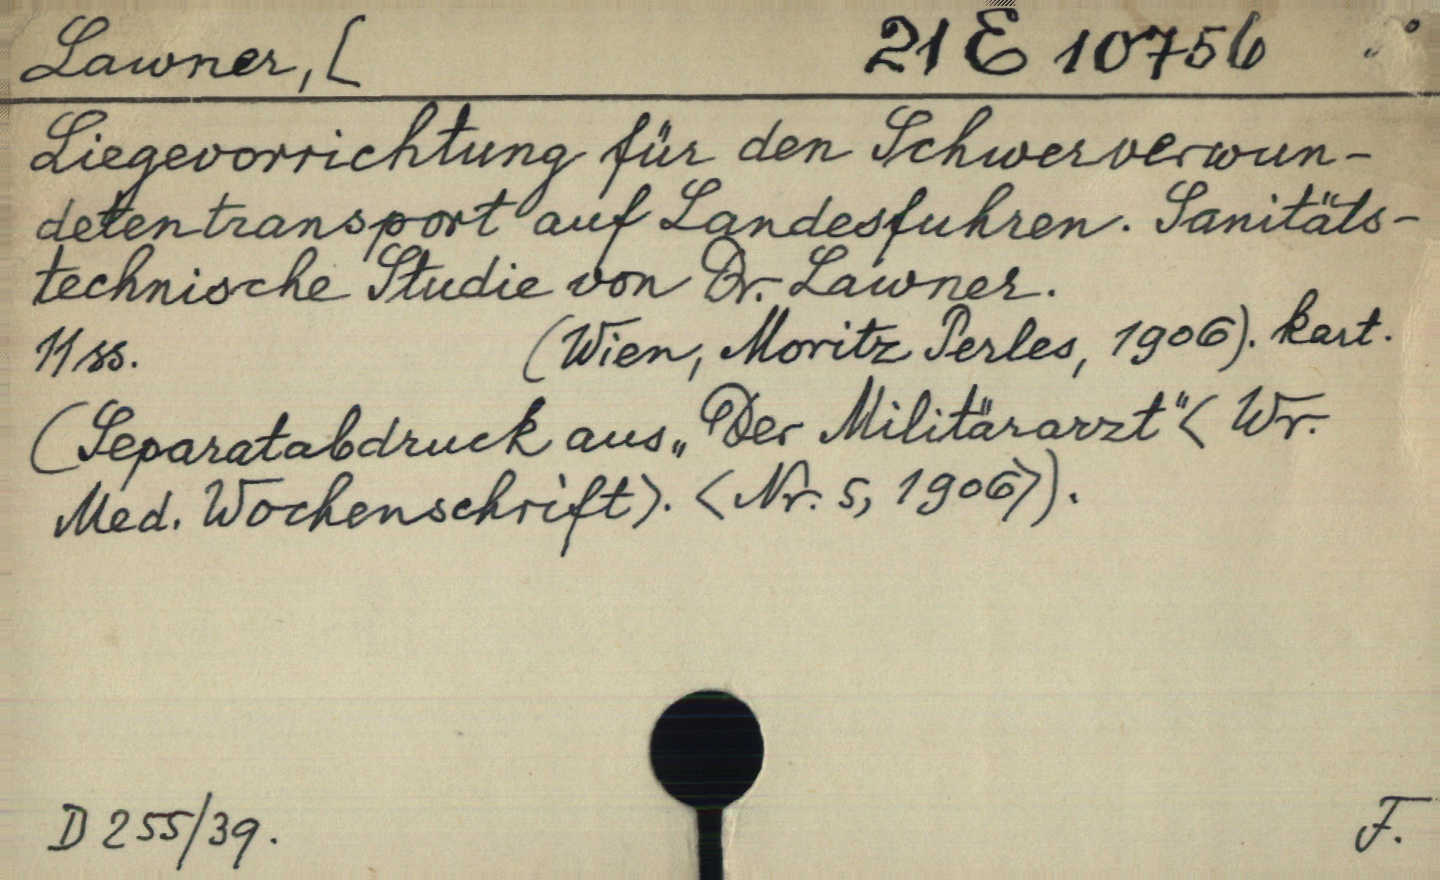 Lawner, [ 21 E 10756
Liegevorrichtung für den Schwerverwun-
detentransport auf Landesfuhren. Sanitäts-
technische Studie von Dr. Lawner.
11 ss. (Wien, Moritz Perles, 1906). kart.
(Separatabdruck aus „Der Militärarzt“ < Wr.
Med. Wochenschrift>. <Nr. 5, 1906>).
D 255/39. F.